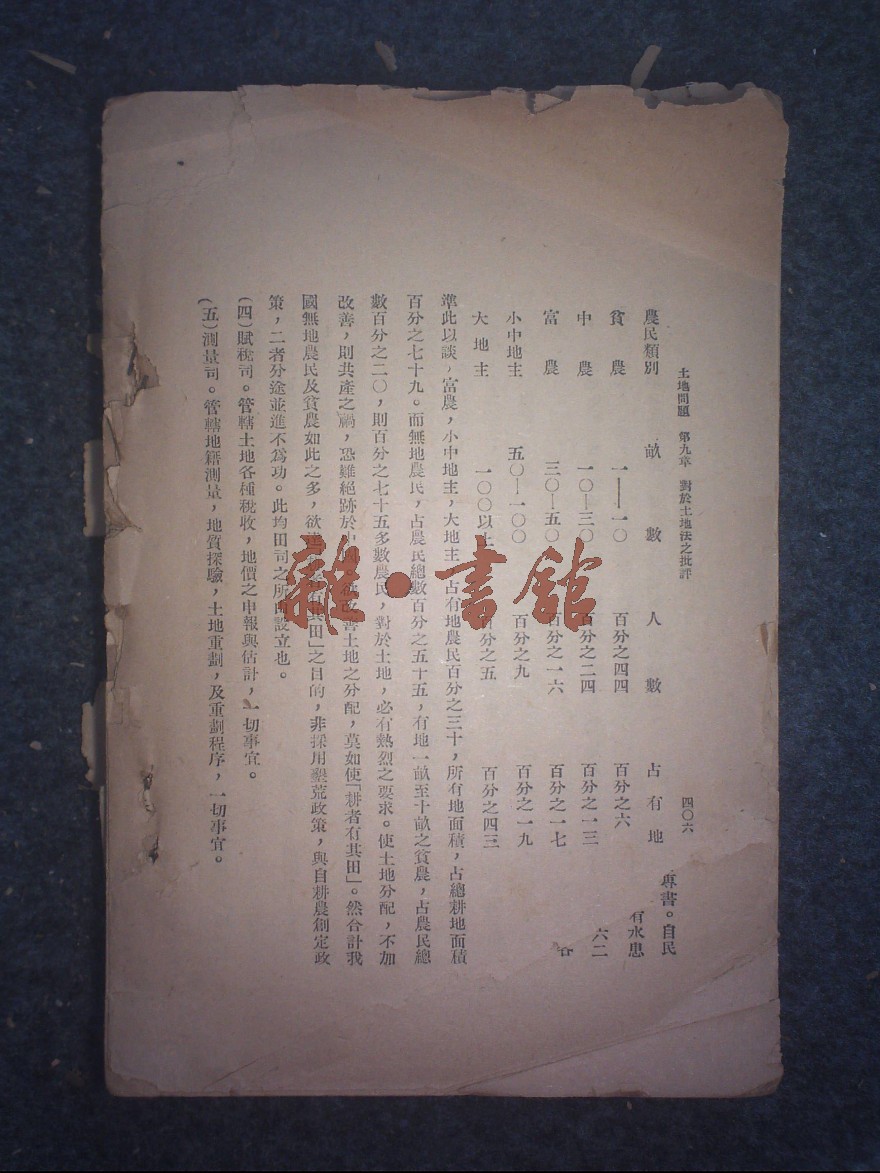 土地問題 第九章 對於土地法之批評 四〇六
專書。自民
有水患
六二
農民類別 畝數 人數 占有地
貧農 一——一〇 百分之四四 百分之六
中農 一〇—三〇 百分之二四 百分之一三
富農 三〇—五〇 百分之一六 百分之一七
小中地主 五〇—一〇〇 百分之九 百分之一九
大地主 一〇〇以上 百分之五 百分之四三
準此以談，富農，小中地主，大地主，占有地農民百分之三十，所有地面積，占總耕地面積
百分之七十九。而無地農民，占農民總數百分之五十五，有地一畝至十畝之貧農，占農民總
數百分之二〇，則百分之七十五多數農民，對於土地，必有熱烈之要求。使土地分配，不加
改善，則共產之禍，恐難絕跡於中 改善土地之分配，莫如使「耕者有其田」。然合計我
國無地農民及貧農如此之多，欲達 其田」之目的，非採用墾荒政策，與自耕農創定政
策，二者分途並進不爲功。此均田司之所 設立也。
(四)賦稅司。管轄土地各種稅收，地價之申報與估計，一切事宜。
(五)測量司。管轄地籍測量，地質探驗，土地重劃，及重劃程序，一切事宜。
雜·書館